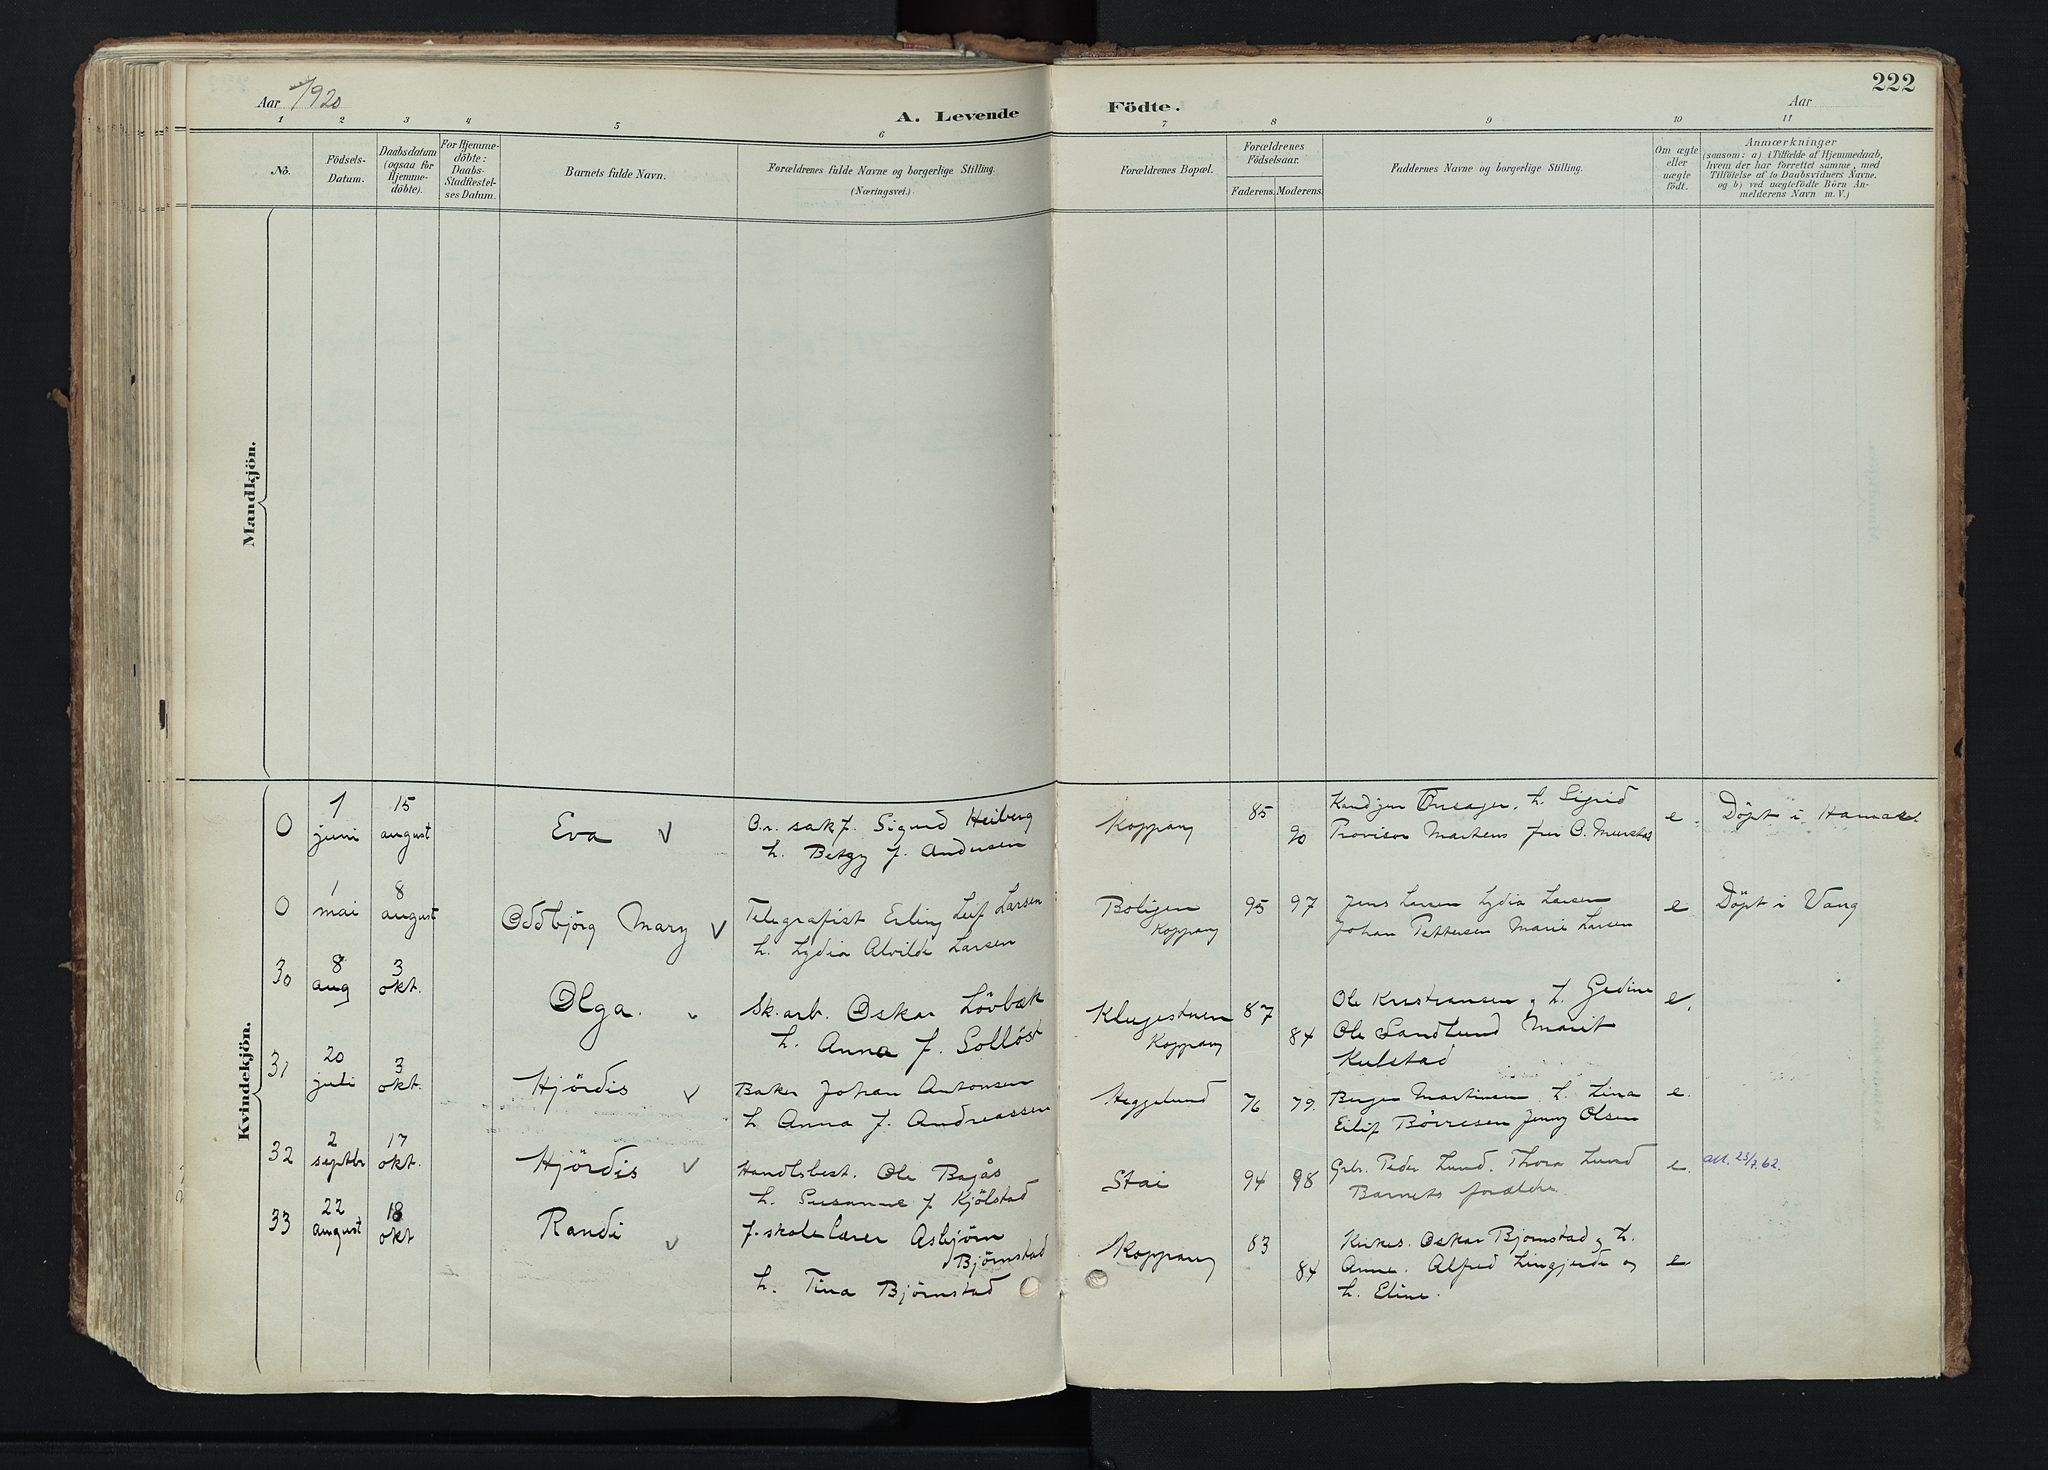 222
Aar 1920
A. Levende
Födte.
Aar
1 2 3 4 5 6 7 8 9 10 11
No.
Födsels-
Datum.
Daabsdatum
(ogsaa for
Hjemme-
döbte).
For Hjemme-
döbte:
Daabs-
Stadfæstel-
ses Datum.
Barnets fulde Navn.
Forældrenes fulde Navne og borgerlige Stilling.
(Næringsvei.)
Forældrenes Bopæl.
Forældrenes
Födselsaar.
Faderens. Moderens.
Faddernes Navne og borgerlige Stilling.
Om ægte
eller
uægte
födt.
Anmærkninger
(saasom: a) i Tilfælde af Hjemmedaab,
hvem der har forrettet samme, med
Tilföielse af to Daabsvidners Navne,
og b) ved uægtefödte Börn An-
melderens Navn m. V.)
Mandkjön.
Kvindekjön.
0
1
juni
15
august
Eva
O.r. sakf. Sigurd Heiberg
h. Betzy f. Andersen
Koppang
85
90
h. Sigrid
Provisor Martens fru
e.
Döpt i Hamar.
0
1
mai
8
august
Oddbjörg Mary
Telegrafist Erling Leif Larsen
h. Lydia Alvilde Larsen
Boligen
Koppang
95
97
Jens Larsen Lydia Larsen
Johan Pettersen Marie Larsen
e
Döpt i Vang
30
8
aug
3
okt.
Olga.
Sk.arb. Oskar Lövbæk
h. Anna f. Sollöst
Klugestuen
Koppang
87
84
Ole Kristiansen og h. Gedine
Ole Sandlund Marit
Kulstad
e.
31
20
juli
3
okt.
Hjördis
Baker Johan Antonsen
h Anna f. Andreassen
Heggelund
76
79.
Birger Martinsen h. Lina
Eilif Börresen Jenny Olsen
e.
32
2
septbr
17
okt.
Hjördis
Handlsbest. Ole Bagås
h. Susanne f Kjölstad
Stai
94
98
Grbr. Peder Lund. Thora Lund
Barnets forældre
e.
att. 23/7.62.
33
22
august
18
okt
Randi
f. skolelærer Asbjörn
Björnstad
h. Tina Björnstad
Koppang
83
84
Kirkes. Oskar Bjornstad og h.
Anne. Alfred Lingjerde og
h. Eline.
e